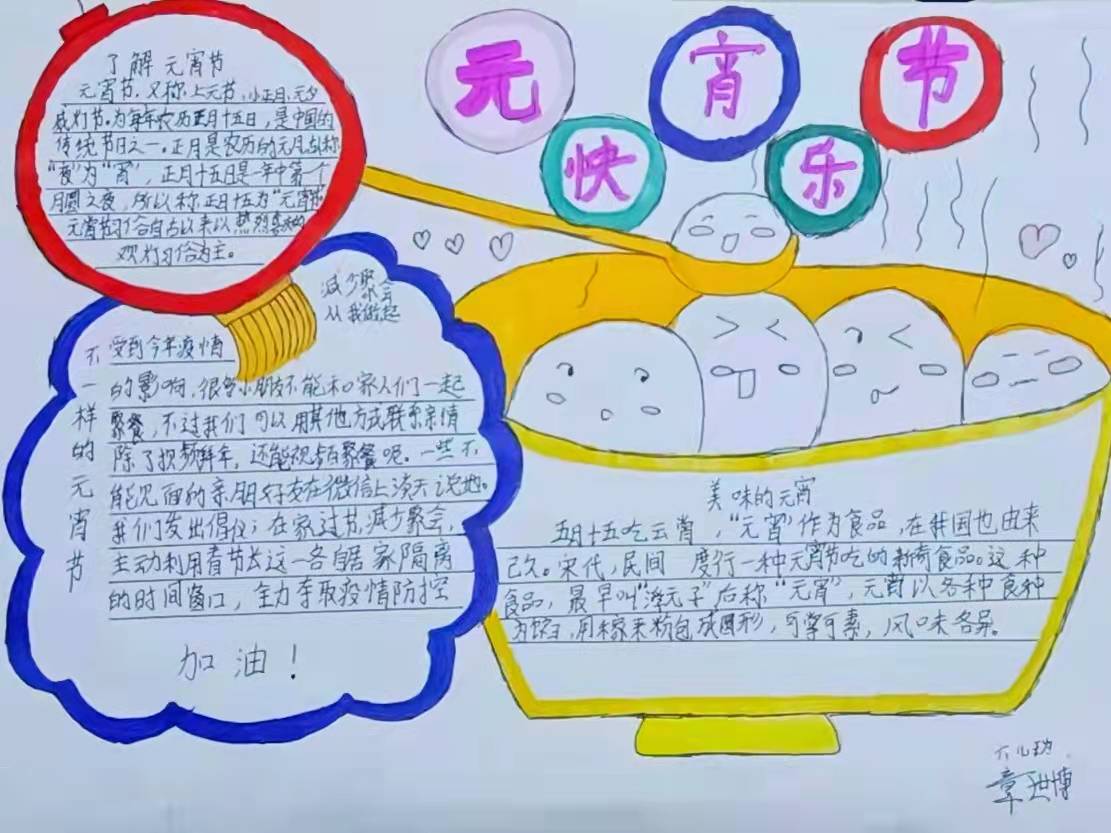 元宵节
快乐
了解元宵节
元宵节,又称上元节,小正月,元夕
或灯节。为每年农历正月十五日,是中国的
传统节日之一。正月是农历的元月,古人称
“夜”为“宵”,正月十五日是一年中第一个
月圆之夜,所以称正月十五为“元宵节”
元宵节习俗自古以来以热烈喜庆的
观灯习俗为主。
减少聚会
从我做起
不一样的元宵节
受到今年疫情
的影响,很多小朋友不能和家人们一起
聚餐,不过我们可以用其他方式联系亲情
除了视频拜年,还能视频聚餐呢。一些不
能见面的亲朋好友在微信上谈天说地。
我们发出倡仪;在家过节,减少聚会,
主动利用春节长这一各自居家隔离
的时间窗口,全力争取疫情防控
加油!
美味的元宵
五月十五吃云宵,“元宵”作为食品,在我国也由来
已久。宋代,民间 度行一种元宵节吃的新奇食品。这种
食品,最早叫“浮元子”后称“元宵”,元宵以各种食种
为馅,用糯米粉包成圆形,可荤可素,风味各异。
章世博